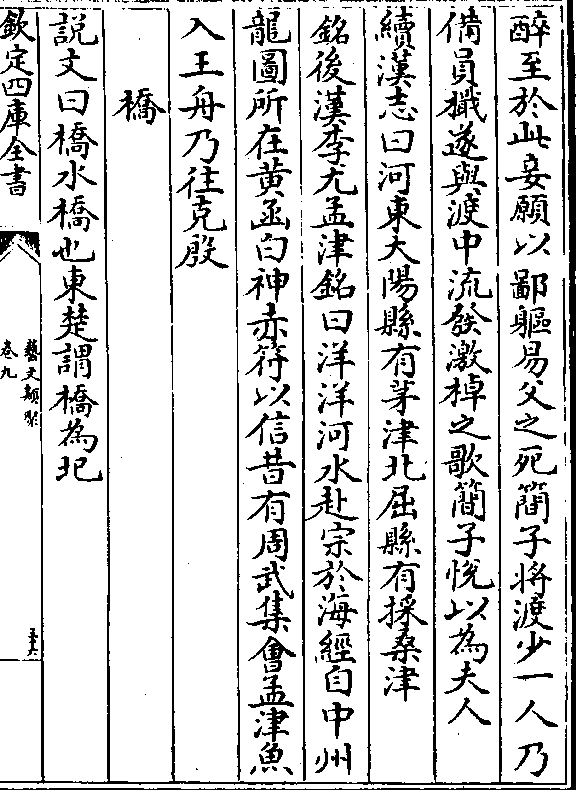 醉至於此妾願以鄙軀易父之死簡子將渡少一人乃
備員檝遂與渡中流發激棹之歌簡子悅以為夫人
續漢志曰河東大陽縣有茅津北屈縣有採桑津
銘後漢李尤孟津銘曰洋洋河水赴宗於海經自中州
龍圖所在黄函白神赤符以信昔有周武集會孟津魚
入王舟乃往克殷
橋
説文曰橋水橋也東楚謂橋為圯
欽定四庫全書
藝文類聚
卷九